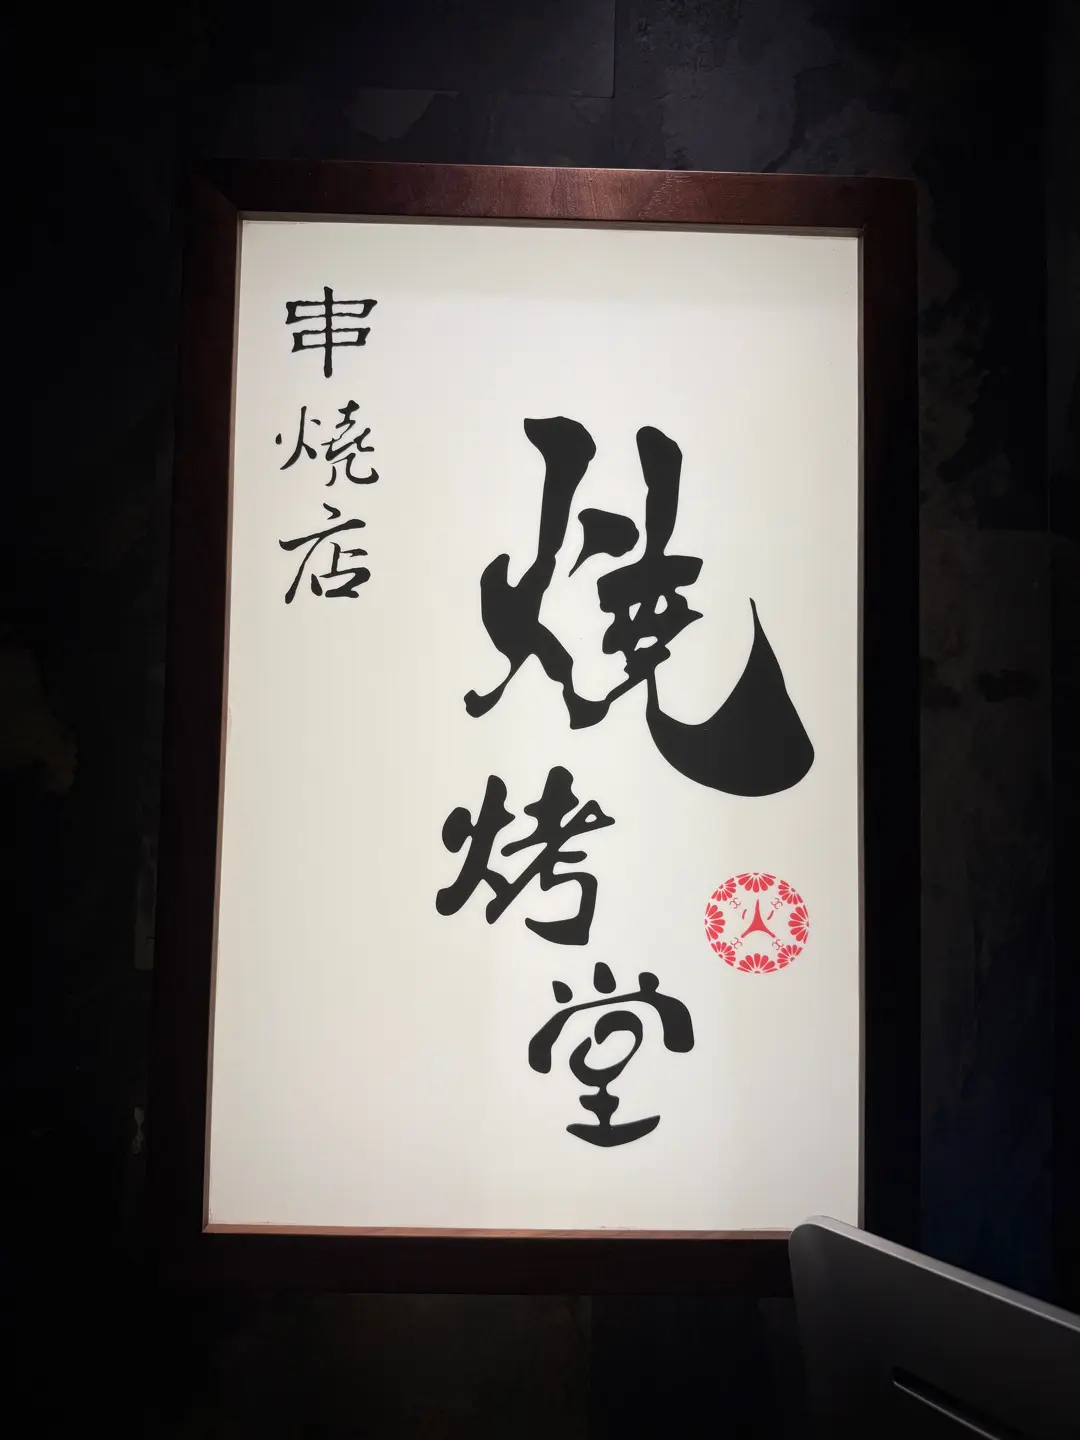 燒烤堂
火
串燒店